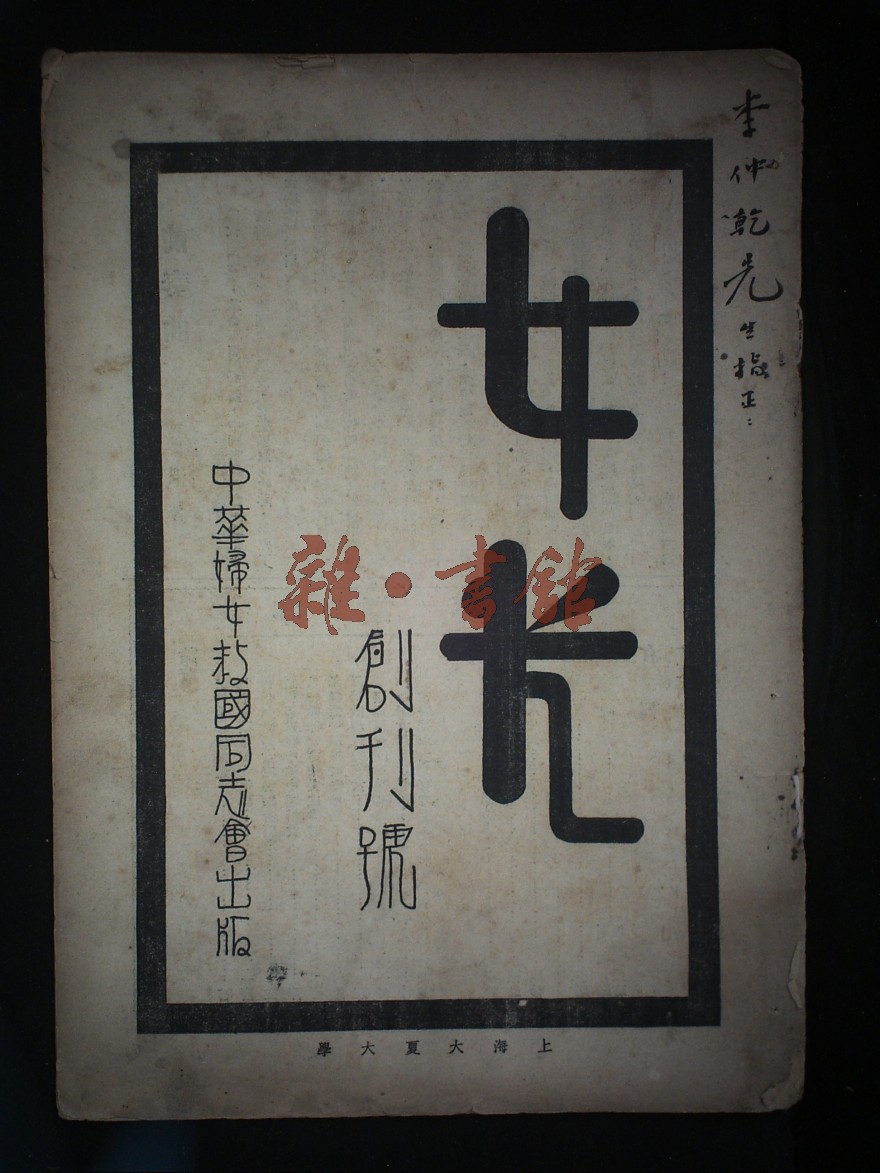 李仲乾先生指正：
女光
創刊號
中華婦女救國同志會出版
雜·書館
上海大夏大學